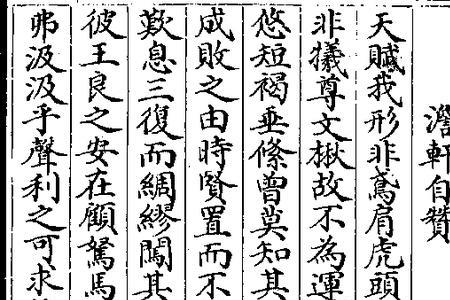 澹軒自贊
天賦我形非鳶肩虎頭
非犧尊文楸故不為運
悠短褐垂絛曾莫知其
成敗之由時賢置而不
歎息三復而綢繆闖其
彼王良之安在顧駑馬
弗汲汲乎聲利之可求